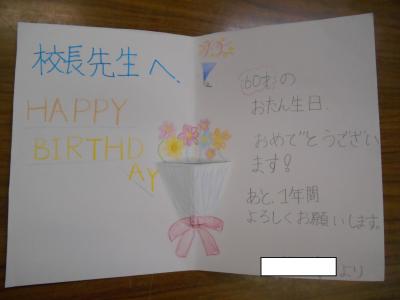 校長先生へ.
HAPPY
BIRTHD
AY
60才の
おたん生日.
おめでとうござい
ます!
あと、1年間
よろしくお願いします。
より